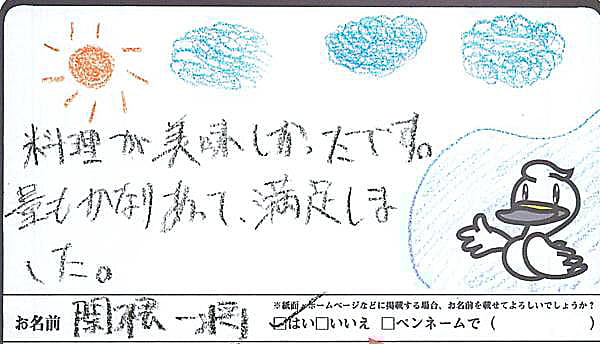 料理が美味しかったです。
量もかなりあって、満足しま
した。
※紙面・ホームページなどに掲載する場合、お名前を載せてよろしいでしょうか?
お名前 関根一樹 ☑はい□いいえ □ペンネームで ( )